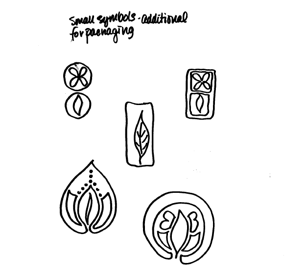 small symbols - additional
for packaging